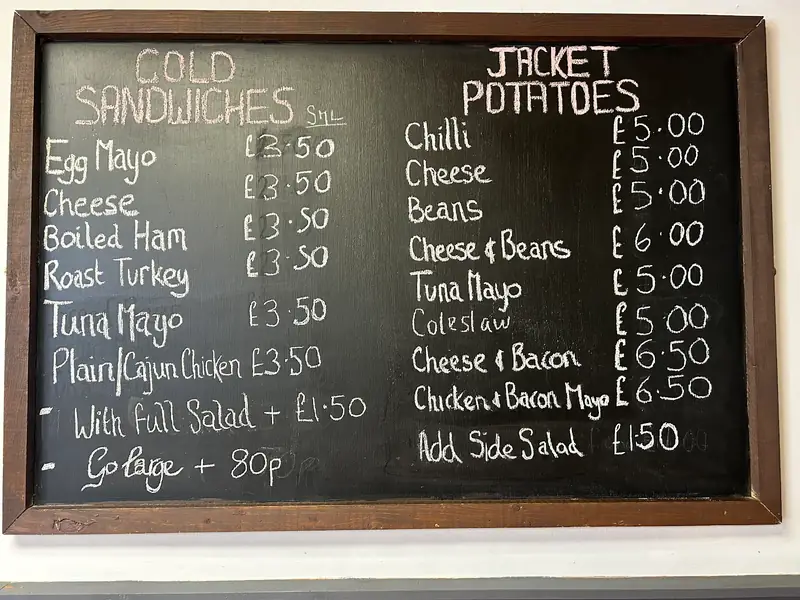 COLD
SANDWICHES SML
Egg Mayo £3.50
Cheese £3.50
Boiled Ham £3.50
Roast Turkey £3.50
Tuna Mayo £3.50
Plain/Cajun Chicken £3.50
- With full Salad + £1.50
- Go large + 80p
JACKET
POTATOES
Chilli £5.00
Cheese £5.00
Beans £5.00
Cheese & Beans £6.00
Tuna Mayo £5.00
Coleslaw £5.00
Cheese & Bacon £6.50
Chicken & Bacon Mayo £6.50
Add Side Salad £1.50